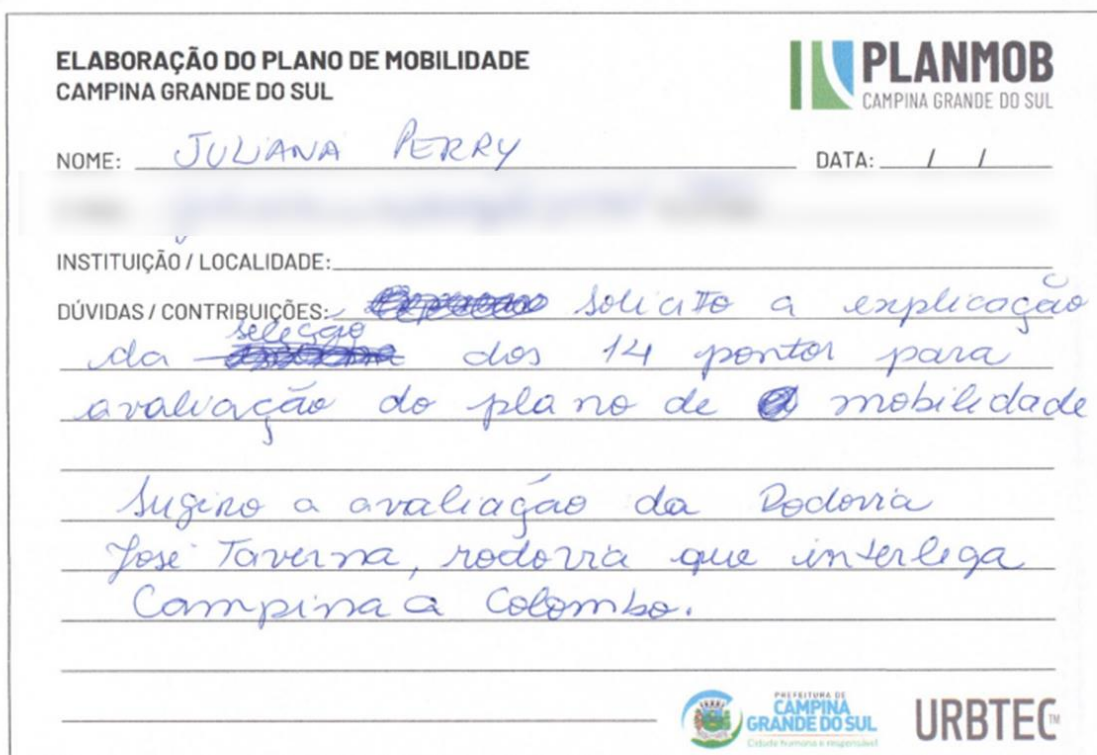 ELABORAÇÃO DO PLANO DE MOBILIDADE
CAMPINA GRANDE DO SUL
PLANMOB
CAMPINA GRANDE DO SUL
NOME: JULIANA PERRY DATA: / /
INSTITUIÇÃO / LOCALIDADE:
DÚVIDAS / CONTRIBUIÇÕES: Solicito a explicação
da seleção dos 14 pontos para
avaliação do plano de mobilidade
Sugiro a avaliação da Rodovia
José Taverna, rodovia que interliga
Campina a Colombo.
PREFEITURA DE
CAMPINA
GRANDE DO SUL
Cidade humana e responsável
URBTEC™